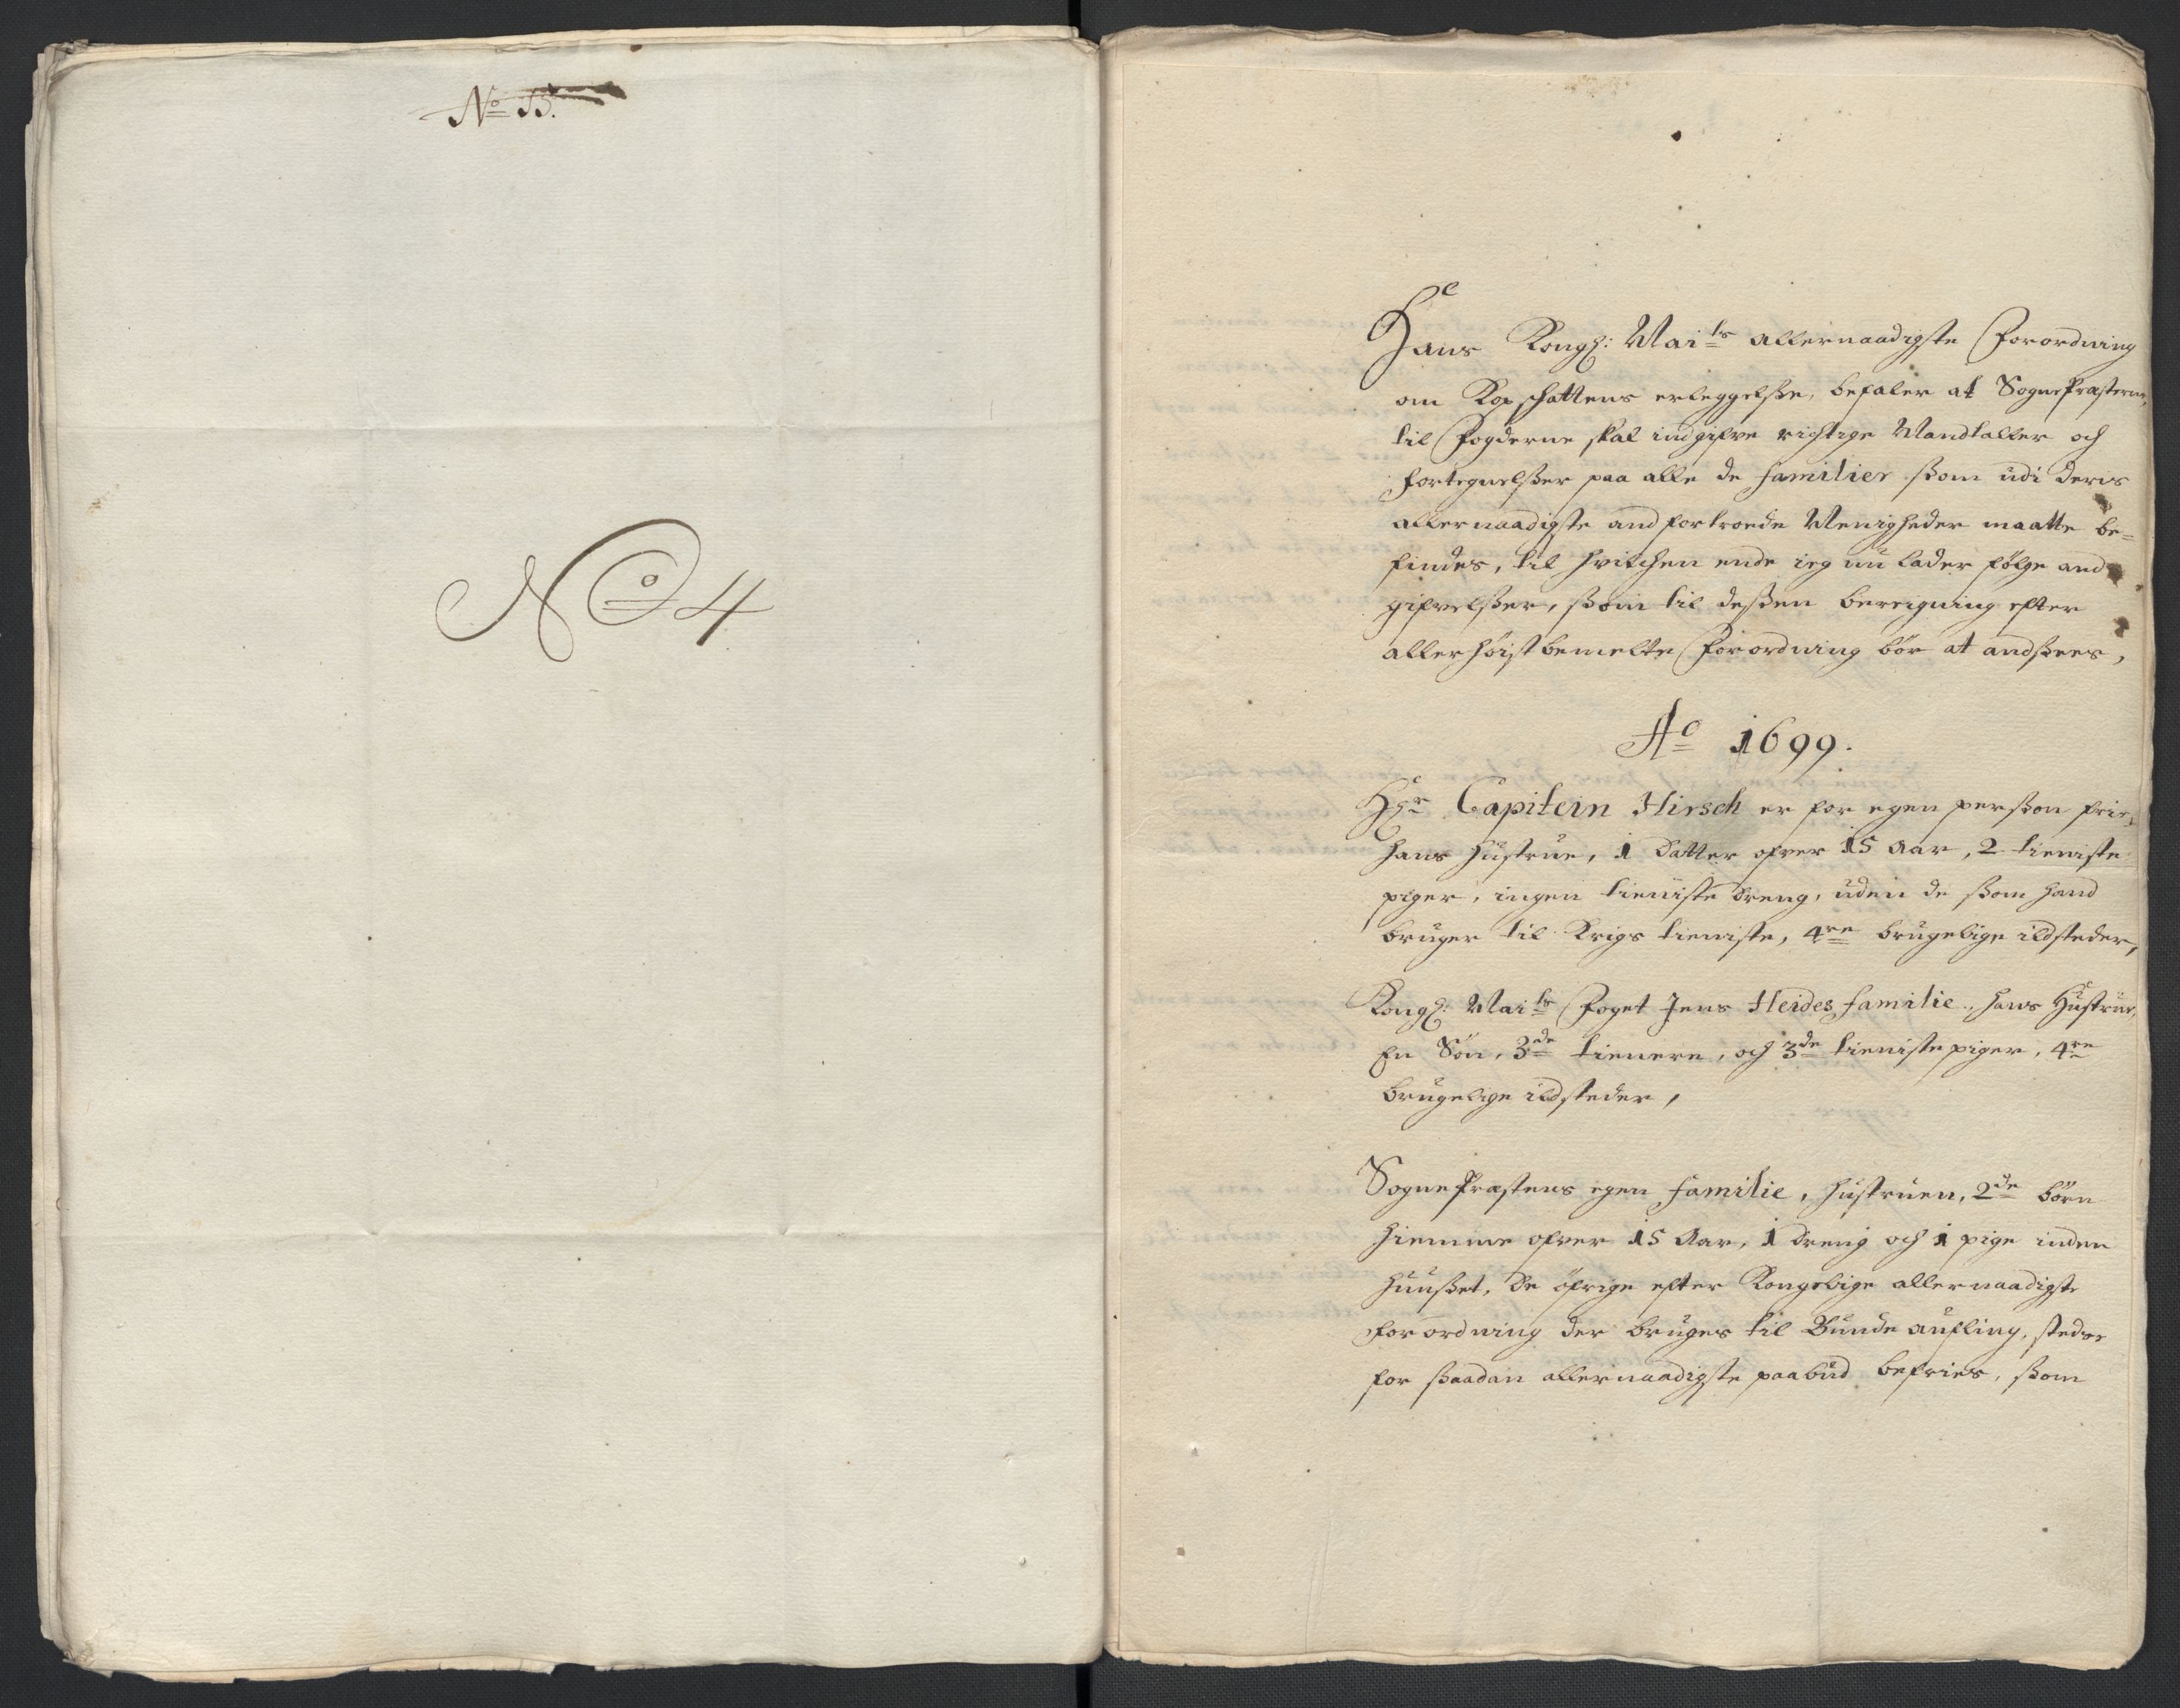 No 13.
No 4
Hans Kongl: Maits allernaadigste Forordning
om Kopschattens erleggelsse, befaler at Sognepræsterne,
til Fogderne skal indgifve rigtige Mandtaller och
fortegnelsser paa alle de familier ssom udi deris
allernaadigste andfortroede Menigheder maatte be-
findes, til hvilchen ende ieg nu lader følge and
gifvelsser, ssom til dessen beregning efter
allerhøistbemelte Forordning bør at andssees,
Ao 1699.
Hr Capitein Hirsch er for egen persson frie,
hans hustrue, 1 datter ofver 15 Aar, 2 tieniste
piger, ingen tieniste dreng, uden de ssom hand
bruger til Krigs tieniste, 4re brugelige ildsteder,
Kongl: Maits Foget Jens Heides familie, hans Hustrue,
En Søn, 3de tienere, och 3de tienistepiger, 4re
brugelige ildsteder,
Sognepræstens egen familie, hustruen, 2de børn
hiemme ofver 15 Aar, 1 dreng och 1 pige inden
huusset, de øfrige efter Kongelige allernaadigste
forordning der bruges til Bunde aufling, steder
for ssaadan allernaadigste paabud befries, ssom